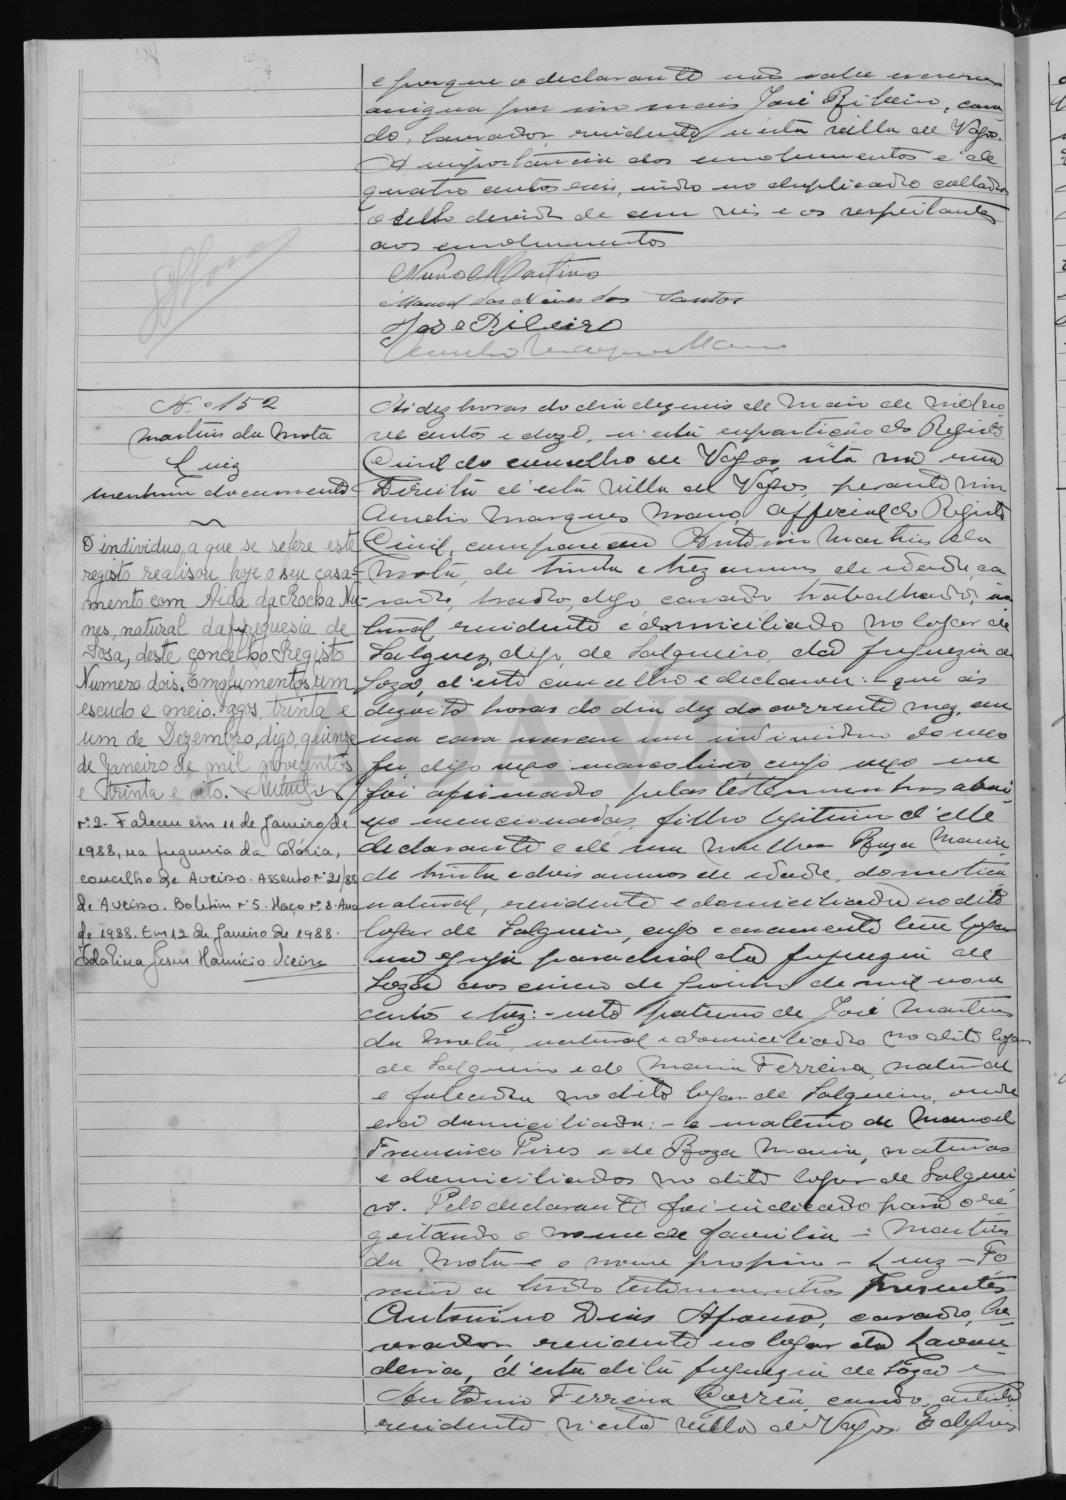 e porque o declarante não sabe escrever
assigna por elle José Ribeiro, casa-
do, lavrador, residente n'esta villa de Vagos.
A importancia dos emolumentos é de
quatro centos reis, indo no duplicado collados
o sello devido de cem reis e os respeitantes
aos emolumentos
Nuno Martins
Manoel das Neves dos Santos
José Ribeiro
Nº 152
Martins da Mota
Luiz
nenhum documento
O individuo a que se refere este
registo realisou hoje o seu casa-
mento com Aida da Rocha Nu-
nes, natural da freguesia de
Sosa, deste concelho. Registo
Numero dois. Emolumentos um
escudo e meio. Vagos, trinta e
um de Dezembro, digo, quinze
de Janeiro de mil novecentos
e trinta e oito.
nº 2 - Faleceu em 11 de Janeiro de
1988, na freguesia da Glória,
concelho de Aveiro. Assento nº 21/88
de Aveiro. Boletim nº 5. Maço nº 3. Ano
de 1988. Em 12 de Janeiro de 1988.
Idalina Jesus Maurício Vieira
Ás dez horas do dia dezseis de Maio de mil no-
ve centos e doze, n'esta repartição do Registo
Civil do concelho de Vagos, sita na rua
Direita d'esta villa de Vagos, perante mim
Aurelio Marques Mano, official do Registo
Civil, compareceu Antonio Martins da
Mota, de trinta e trez annos de idade, ca-
sado, digo, casado trabalhador, na-
tural, residente e domiciliado no logar de
Salguez, digo, de Salgueiro, da freguezia de
Soza, d'este concelho e declarou: que ás
dezoito horas do dia dez do corrente mez, em
sua casa nasceu um individuo do sexo
fe digo sexo masculino, cujo sexo me
foi afirmado pelas testemunhas abai-
xo mencionadas, filho legitimo d'elle
declarante e de sua mulher Roza Maria
de trinta e dois annos de idade, domestica
natural, residente e domiciliada no dito
logar de Salgueiro, cujo casamento teve logar
na egreja parochial da freguezia de
Soza aos cinco de Junho de mil nove
centos e trez: - neto paterno de José Martins
da Mota, natural e domiciliado no dito logar
de Salgueiro e de Maria Ferreira, natural
e falecida no dito logar de Salgueiro, onde
era domiciliada: - e materno de Manoel
Francisco Pires e de Roza Maria, naturaes
e domiciliados no dito logar de Salguei-
ro. Pelo declarante foi indicado para o re-
gistando o nome de familia - Martins
da Mota - e o nome proprio - Luiz - Fo-
ram testemunhas presentes
Antonino Dias Afonso, casado, la-
vrador residente no logar da Lavan-
deira, d'esta dita freguezia de Soza e
Antonio Ferreira Corrêa, casado, artista
residente n'esta villa de Vagos. E depois